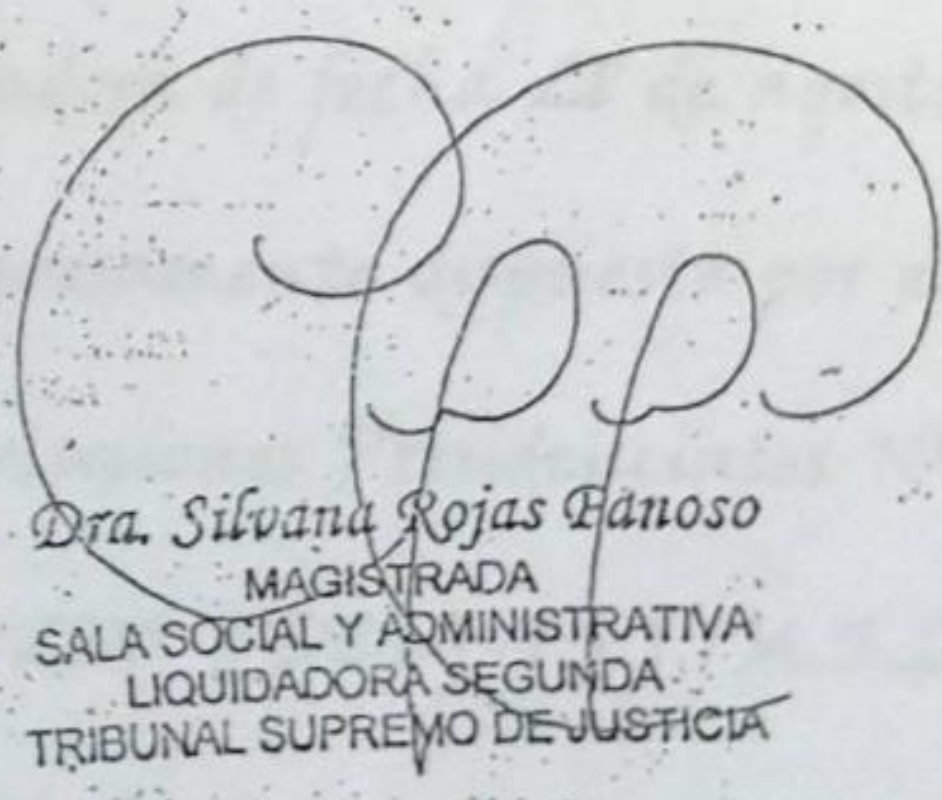 Dra. Silvana Rojas Panoso
MAGISTRADA
SALA SOCIAL Y ADMINISTRATIVA
LIQUIDADORA SEGUNDA
TRIBUNAL SUPREMO DE JUSTICIA